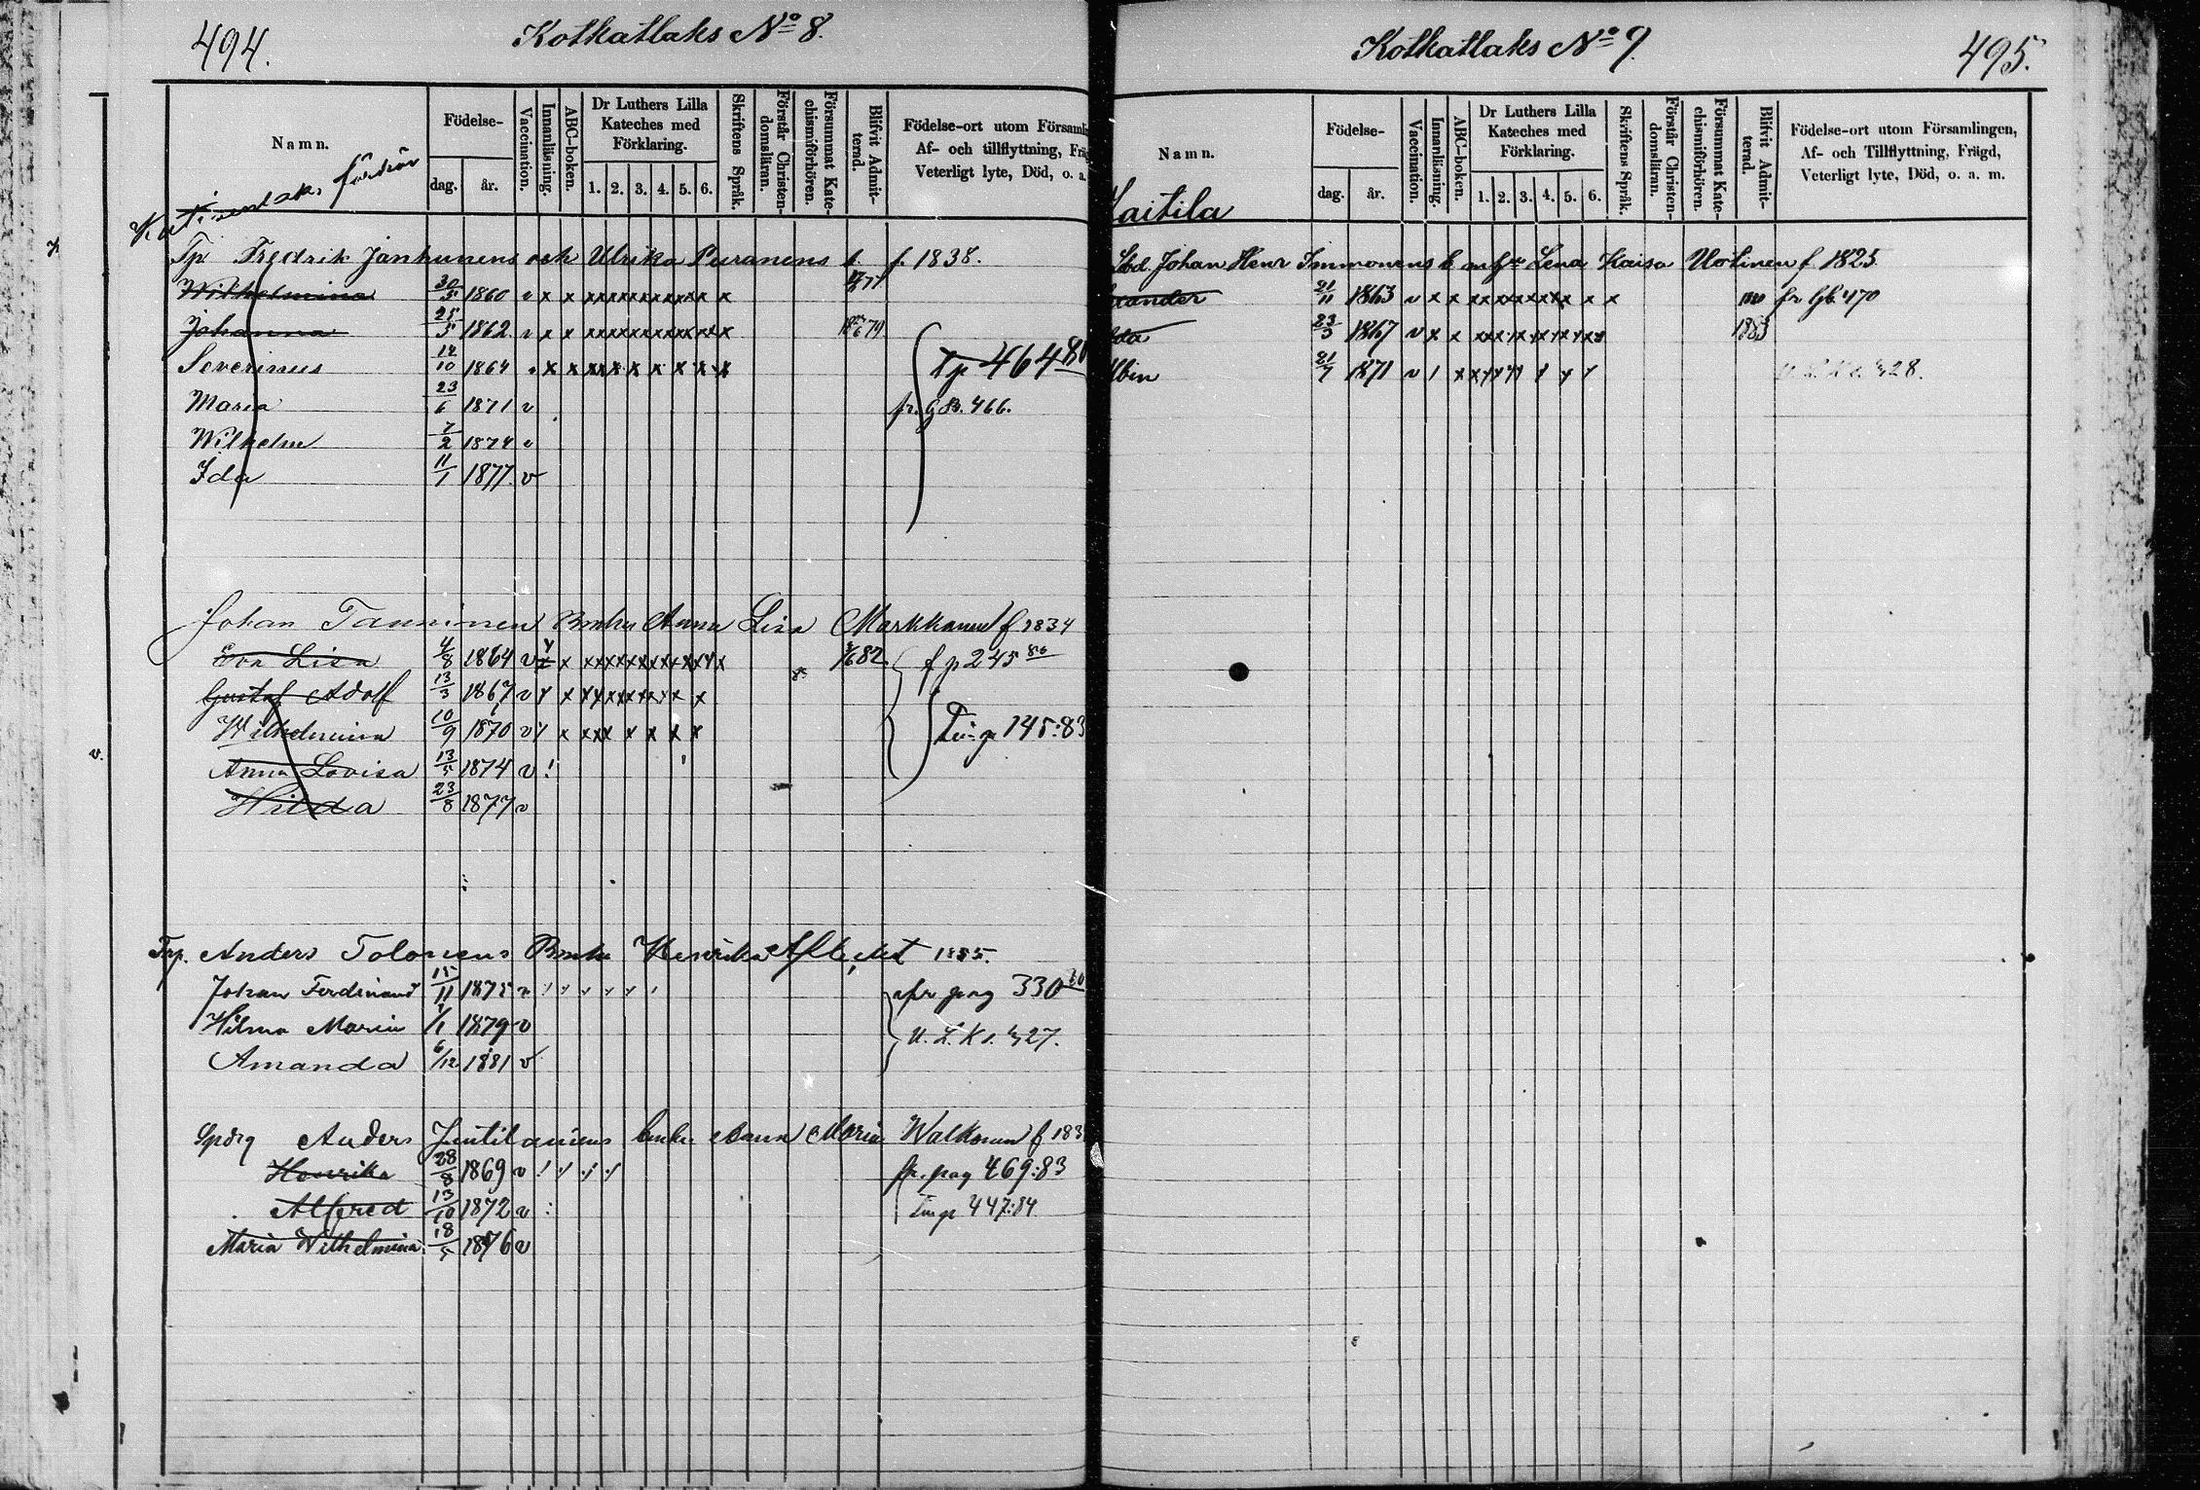 494.
Kotkatlaks No 8.
Namn.
Födelse-
dag.
år.
Vaccination.
Innanläsning.
ABC-boken.
Dr Luthers Lilla
Kateches med
Förklaring.
1. 2. 3. 4. 5. 6.
Skriftens Språk.
Förstår Christen-
domsläran.
Försummat Kate-
chismiförhören.
Blifvit Admit-
terad.
Födelse-ort utom Församli
Af- och tillflyttning, Fräg
Veterligt lyte, Död, o. a.
Tp Fredrik Janhunens och Ulrika Puranens b. f. 1838.
Wilhelmina 30/5 1860 v x x xxxxxxxxxxx x 77
Johanna 25/5 1862 v x x xxxxxxxxxxxx 79
Severinus 12/10 1864 x x xxx x x x x x x Tp 464
Maria 23/6 1871 v fr. g B. 466.
Wilhelm 7/2 1874 v
Ida 11/1 1877 v
Johan Tanninen Anna Lisa Markkanen f 1834
Eva Lisa 4/8 1864 v x x xxxxxxxxxxxx 82 f p 245 86
Gustaf Adolf 13/3 1867 v x x xxxxxxx x x
Wilhelmina 10/9 1870 v x xxx x x x x 145:83
Anna Lovisa 13/5 1874 v !
Hilda 23/8 1877 v
Trp. Anders Tolonens Henrika 1885.
Johan Ferdinand 15/11 1875 v pag 330
Hilma Maria 1/1 1879 v U. L. K s. 427.
Amanda 6/12 1881 v
Anders Maria Walkonen f 183
Henrika 28/8 1869 v fr. pag 469:83
Alfred 13/10 1872 v 447:84
Maria Wilhelmina 18/5 1876 v
Kotkatlaks No 9.
495.
Namn.
Födelse-
dag.
år.
Vaccination.
Innanläsning.
ABC-boken.
Dr Luthers Lilla
Kateches med
Förklaring.
1. 2. 3. 4. 5. 6.
Skriftens Språk.
Förstår Christen-
domsläran.
Försummat Kate-
chismiförhören.
Blifvit Admit-
terad.
Födelse-ort utom Församlingen,
Af- och Tillflyttning, Frägd,
Veterligt lyte, Död, o. a. m.
aitila
Johan Henr Immonens b m Lena Kaisa Uotinen f 1825
xander 21/11 1863 v x x xxxxxxxx x x 470
da 23/3 1867 v x x xxxxxxxxx 1883
lbin 21/7 1871 v 428.